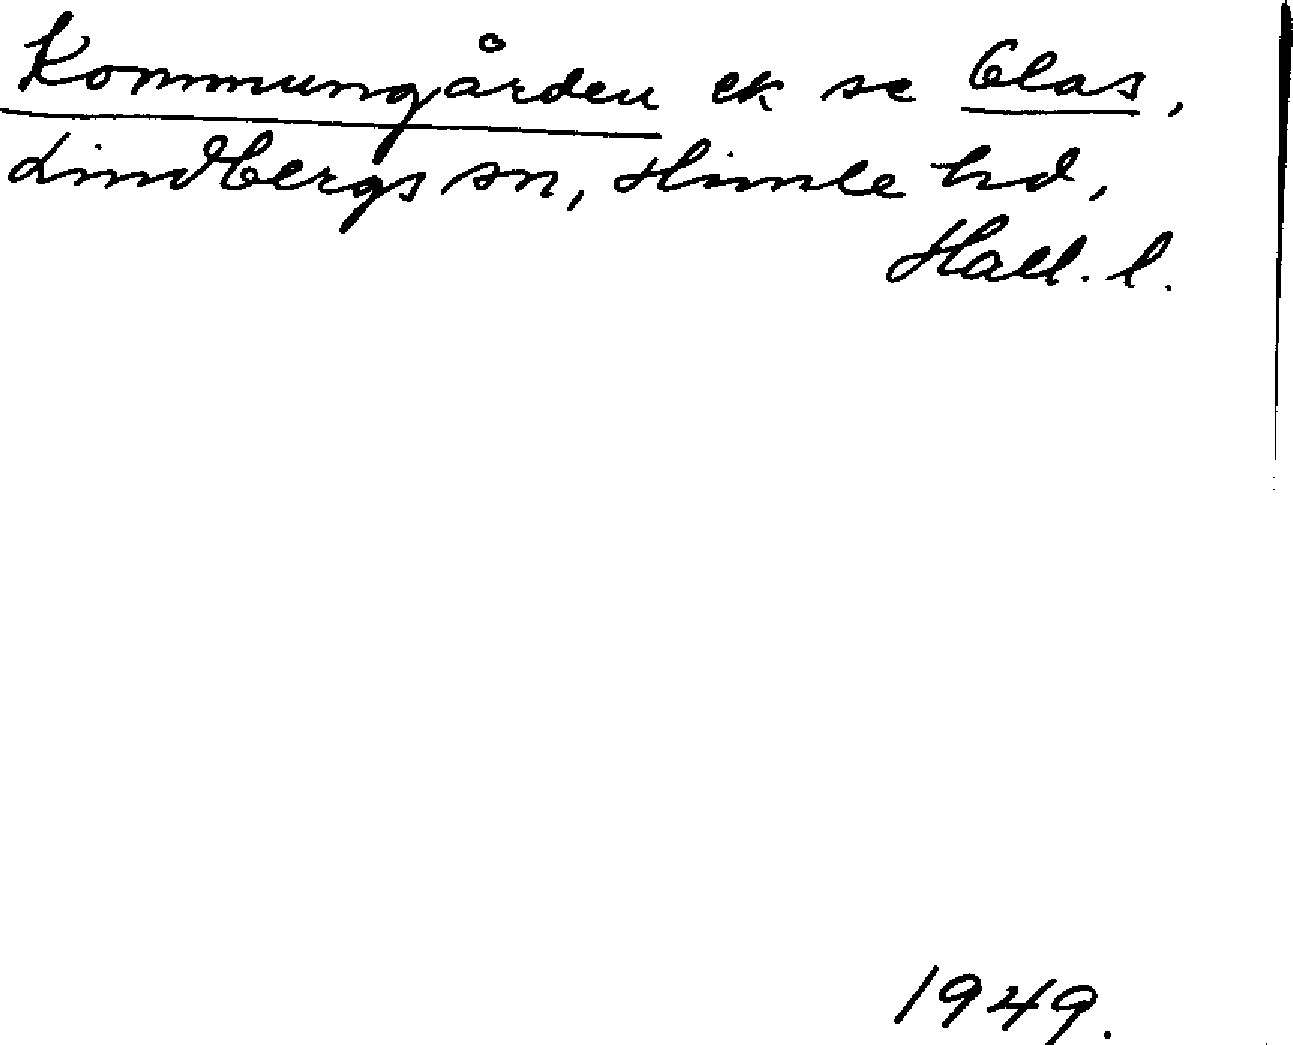 Kommungården ek se Clas,
Lindbergs sn, Himle hd,
Hall. l.
1949.